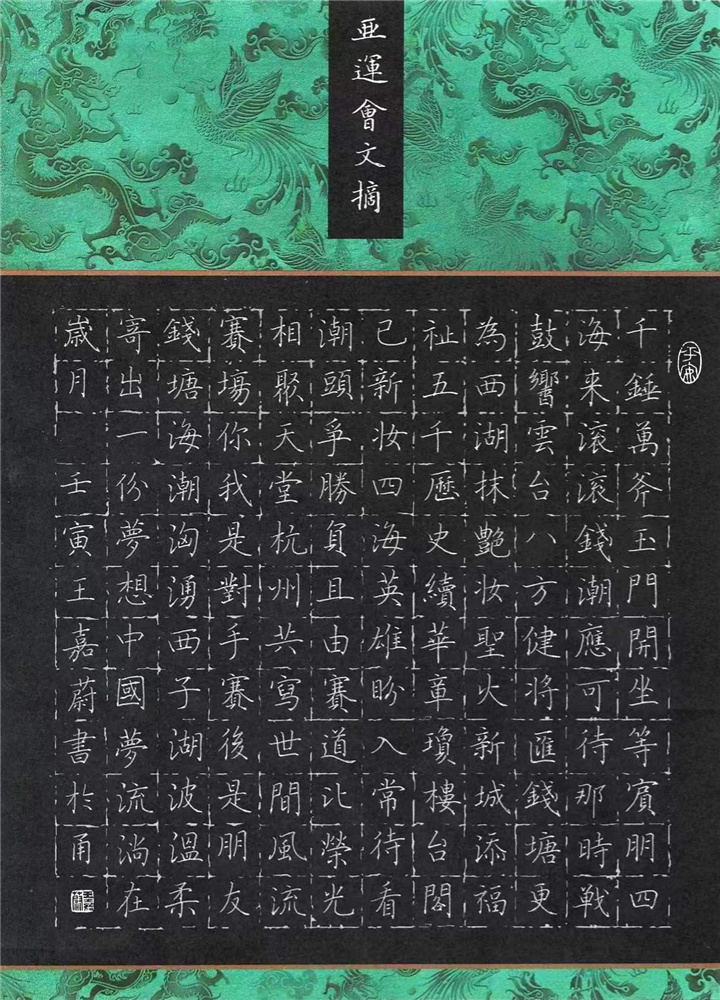 亞運會文摘
千錘萬斧玉門開坐等賓朋四
海来滚滚錢潮應可待那時戰
鼓響雲台八方健将匯錢塘更
為西湖抹艷妆聖火新城添福
祉五千歷史續華章瓊樓台閣
已新妆四海英雄盼入常待看
潮頭爭勝負且由賽道比榮光
相聚天堂杭州共寫世間風流
賽場你我是對手賽後是朋友
錢塘海潮洶湧西子湖波溫柔
寄出一份夢想中國夢流淌在
歲月 壬寅王嘉蔚書於甬